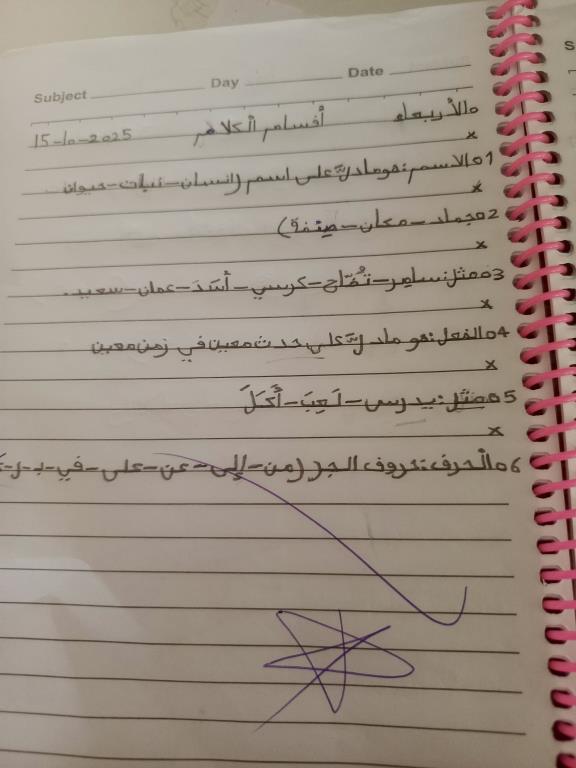 Subject Day Date
الأربعاء أقسام الكلام 15-10-2025
1 الاسم: هو ما دلَّ على اسم (إنسان - نبات - حيوان
2 جماد - مكان - صِفة)
3 مثل: سامر - تُفّاح - كرسي - أَسَدَ - عمان - سعيد.
4 الفعل: هو ما دلَّ على حدث معين في زمن معين
5 مثل: يدرس - لَعِبَ - أَكَلَ
6 الْحرف: حروف الجر (من - إلى - عن - على - في - ب - ل -